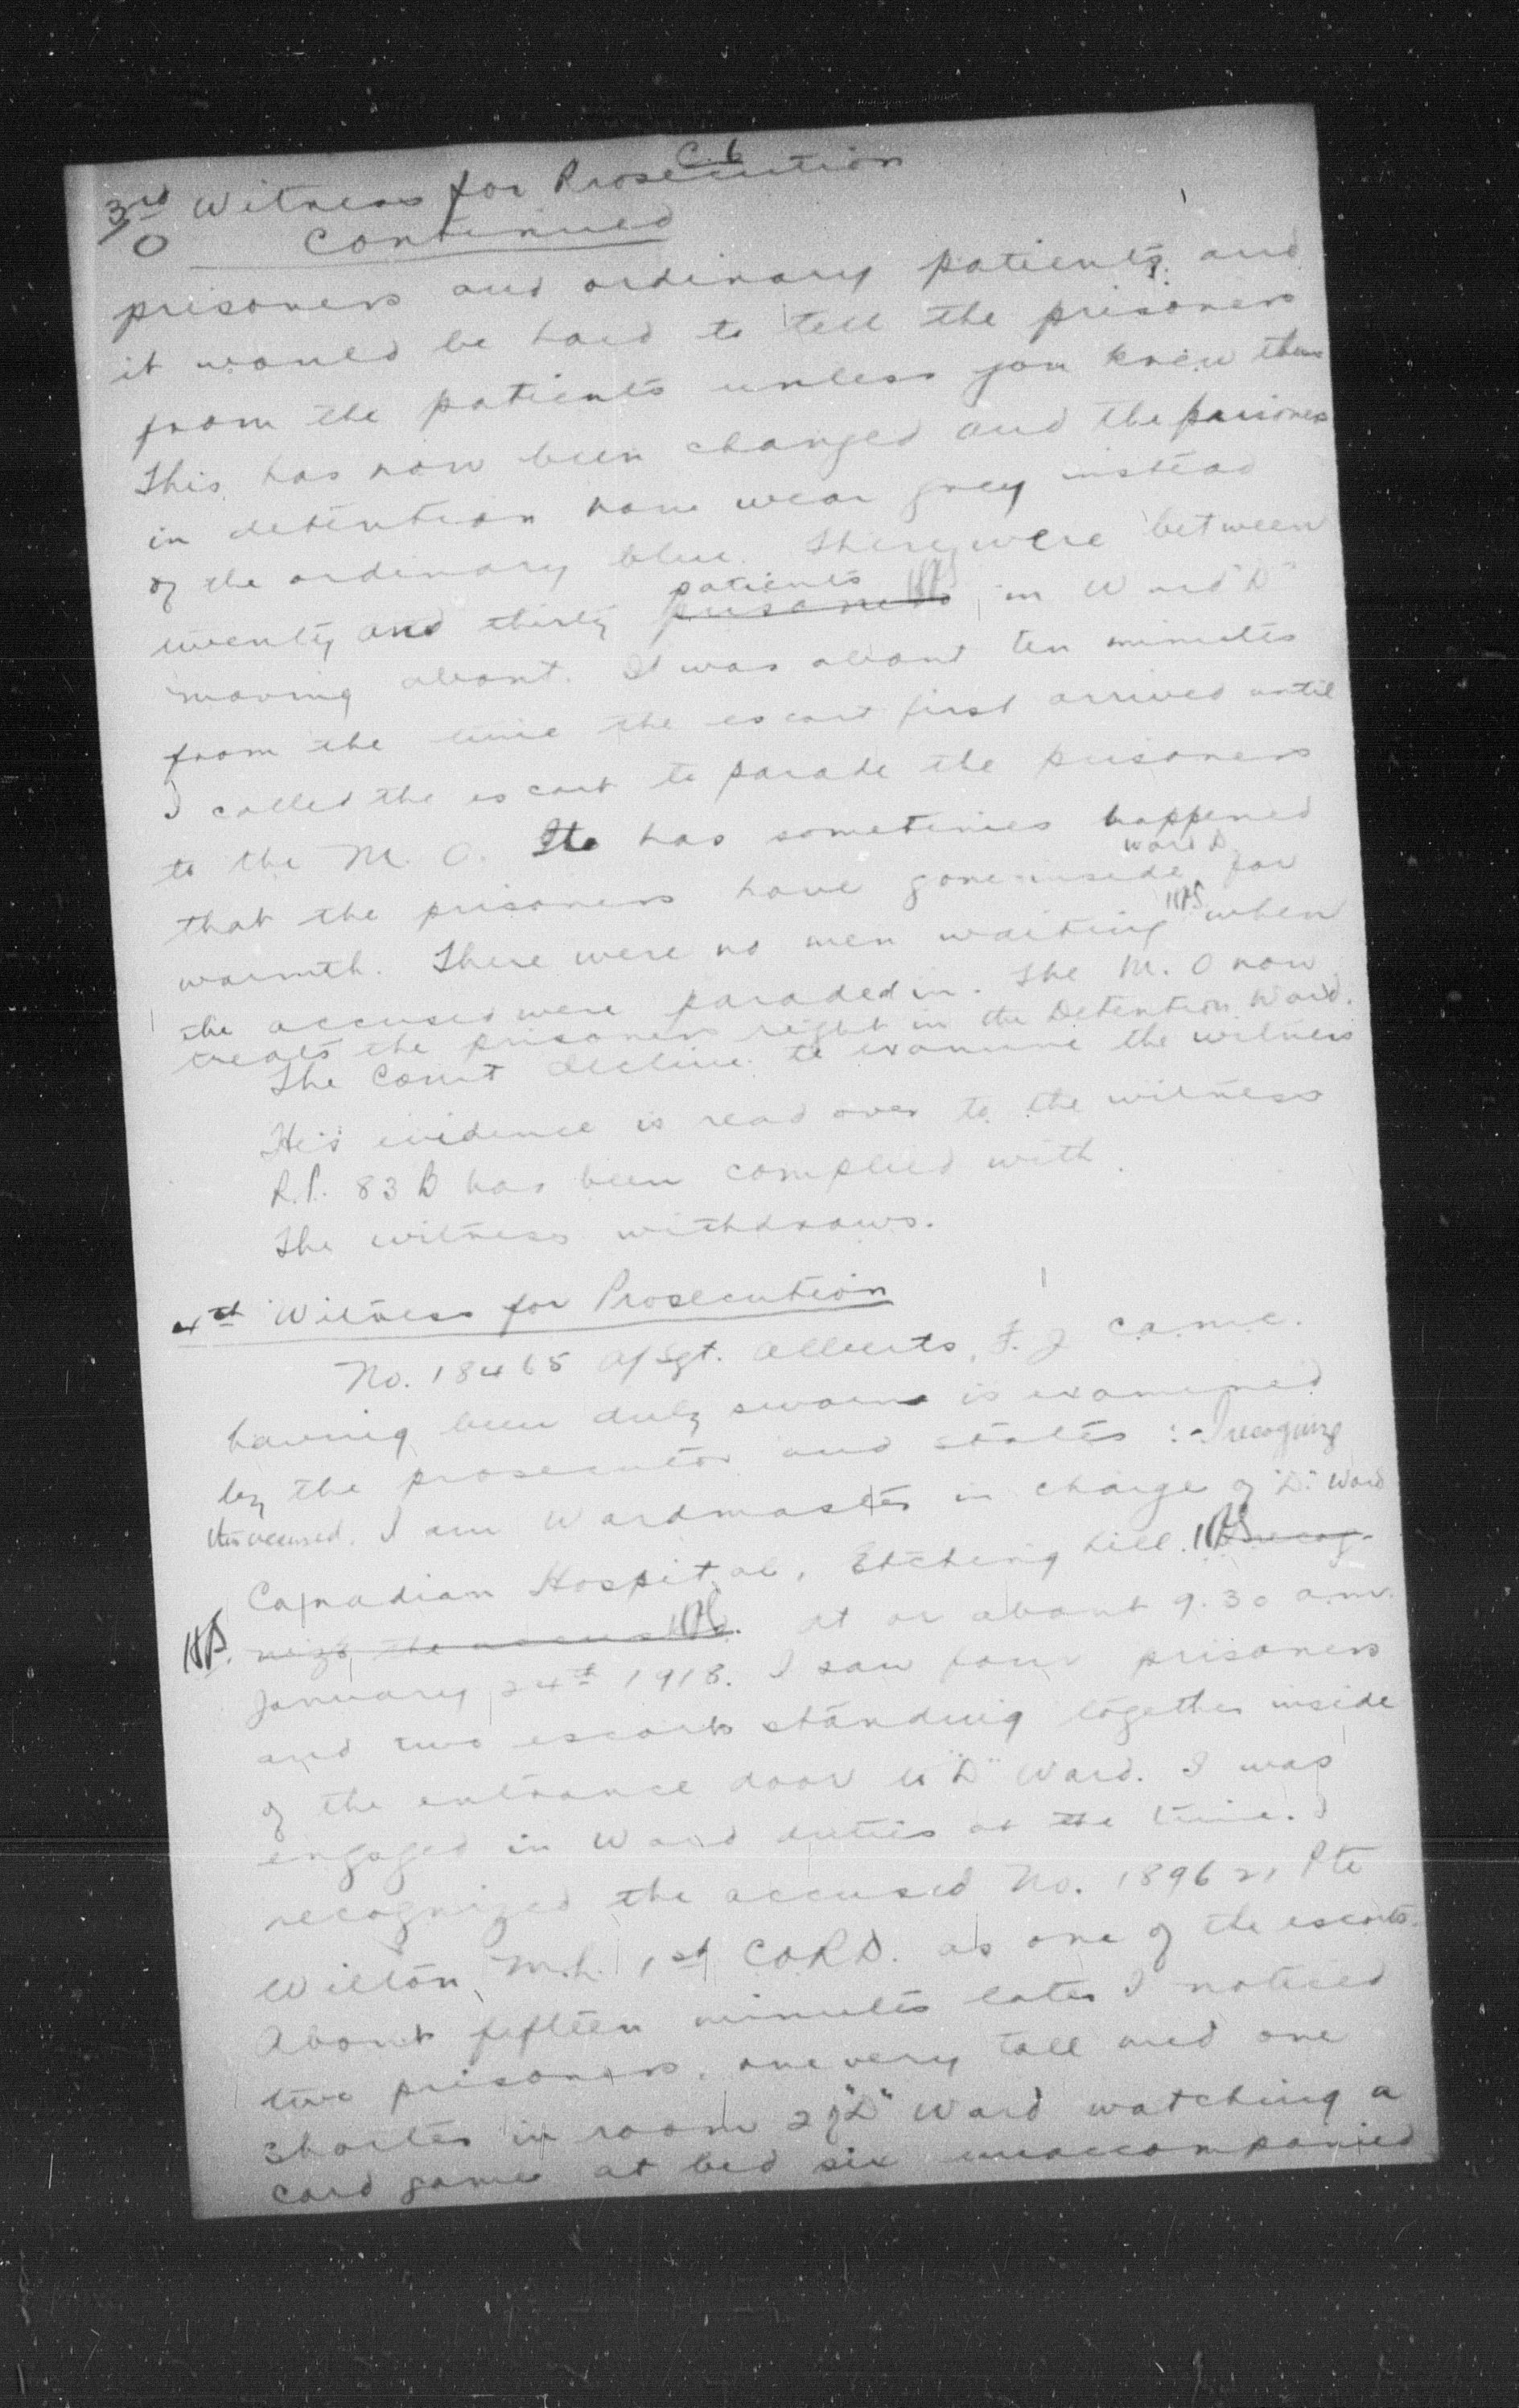 C. 6
3rd Witness for Prosecution
O Continued
prisoners and ordinary patients and
it would be hard to tell the prisoners
from the patients unless you knew them
This has now been changed and the prisoners
in detention now wear grey instead
of the ordinary blue. There were between
patients
twenty and thirty prisoners in Ward "D"
moving about. It was about ten minutes
from the time the escort first arrived until
I called the escort to parade the prisoners
to the M. O. It has sometimes happened
Ward D
that the prisoners have gone inside for
warmth. There were no men waiting when
the accused were paraded in. The M. O now
treats the prisoners right in the Detention Ward.
The Court decline to examine the witness
His evidence is read over to the witness
R.P. 83 B has been complied with.
The witness withdraws.
4th Witness for Prosecution
No. 18465 A/Sgt. Alberts, F. J C.A.M.C.
having been duly sworn is examined
by the prosecutor and states :- I recognize
the accused. I am Wardmaster in charge of "D" Ward
Canadian Hospital, Etching hill. I recog-
nize the accused. At or about 9.30 a.m.
January 24th 1918. I saw four prisoners
and two escorts standing together inside
of the entrance door to "D" Ward. I was
engaged in Ward duties at the time. I
recognized the accused No. 189621 Pte
Wilton, M.L. 1st CORD. as one of the escorts.
About fifteen minutes later I noticed
two prisoners, one very tall and one
shorter in room 2 of "D" Ward watching a
card game at bed six unaccompanied